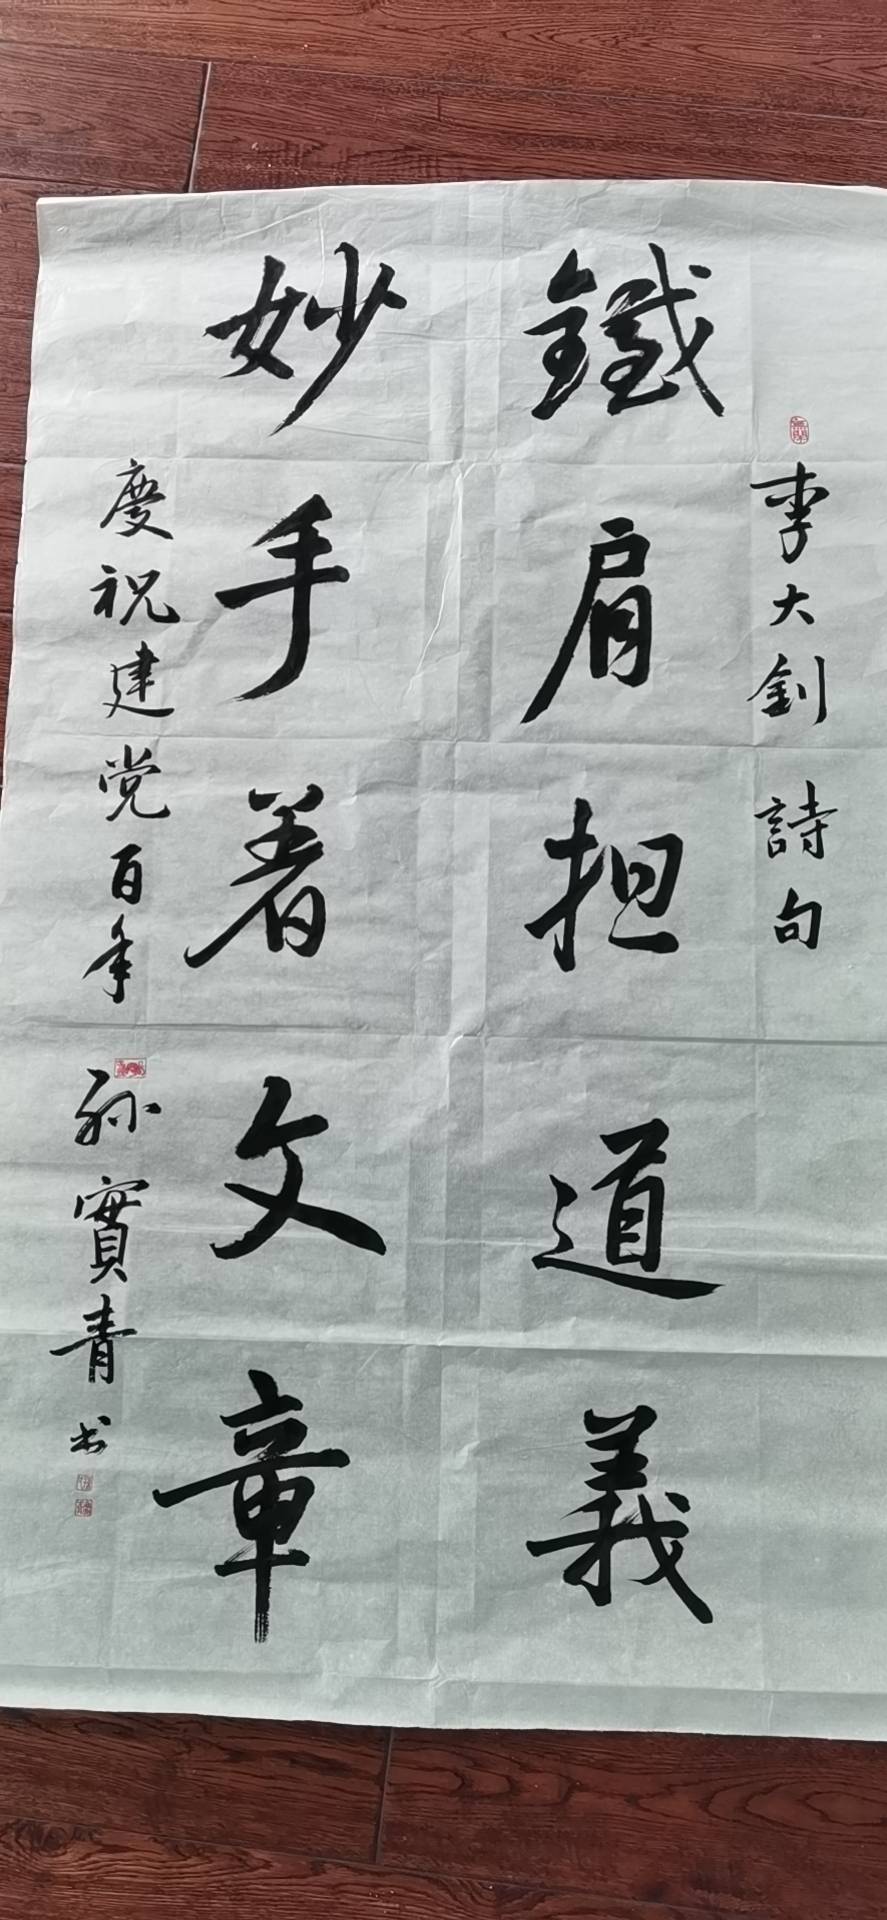 李大釗 詩句
鐵肩担道義
妙手着文章
慶祝建党百年
孙實青书